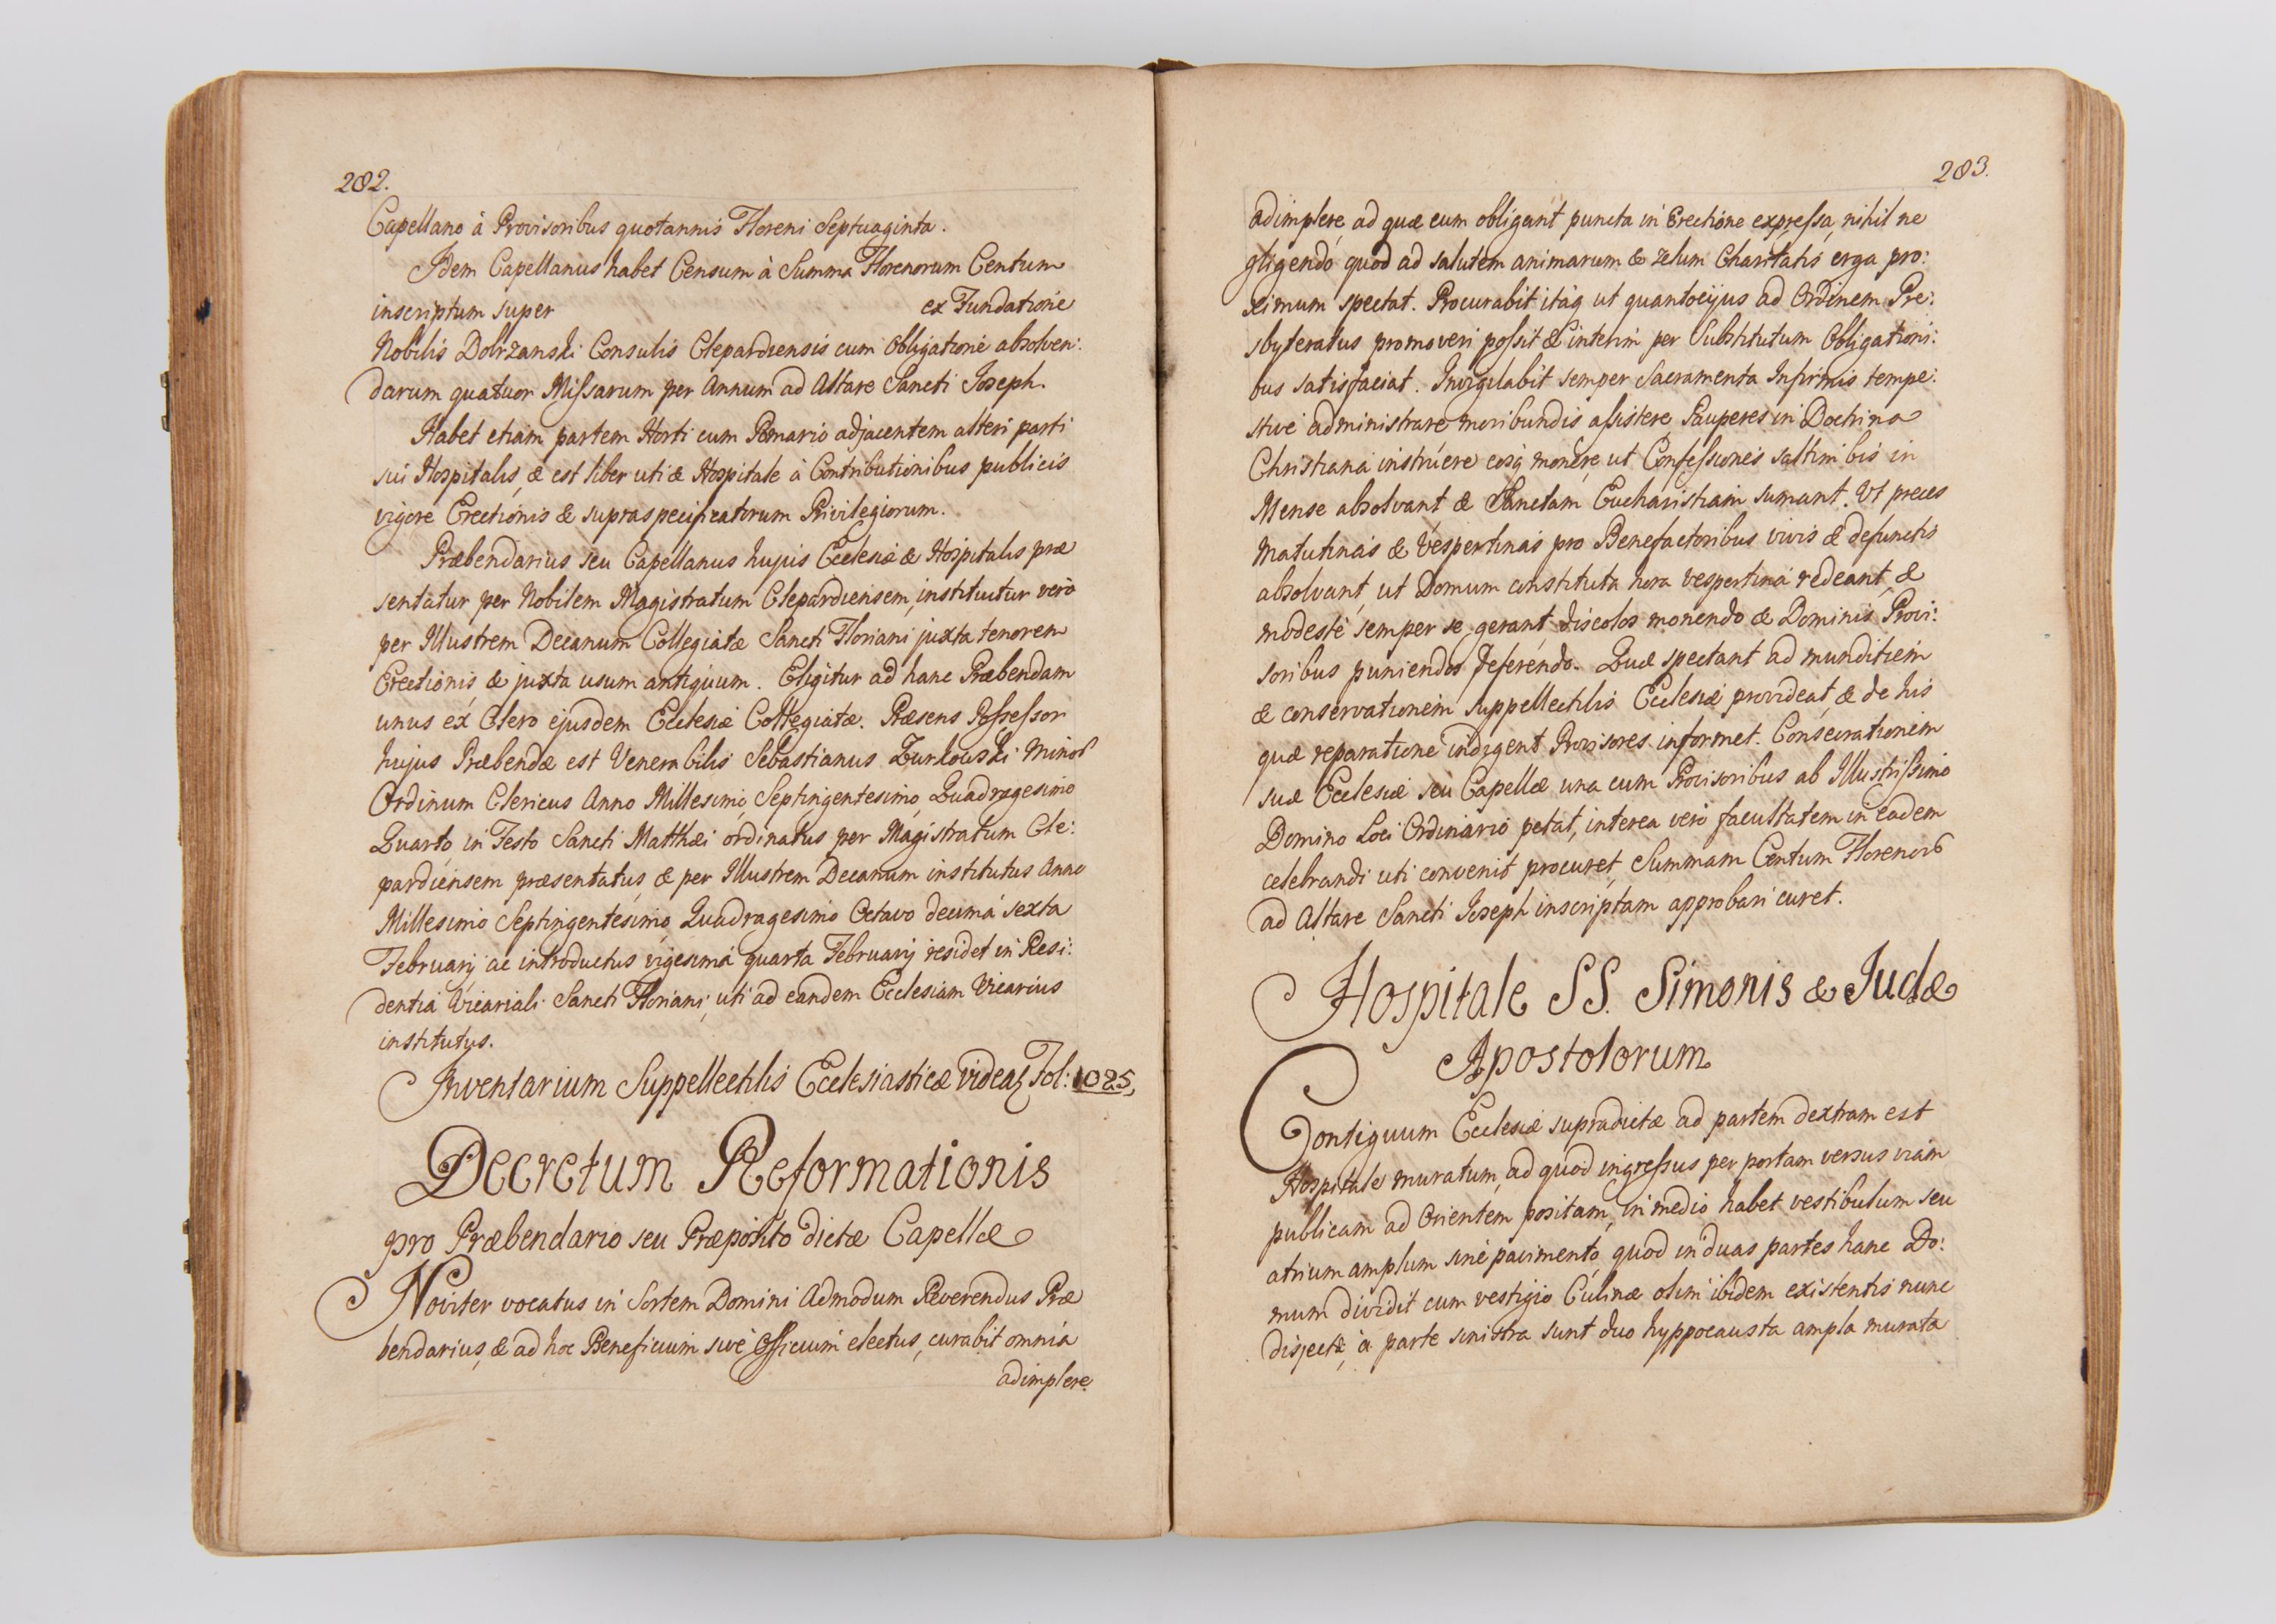 282.
Capellano à Provisoribus quotannis Floreni Septuaginta.
Idem Capellanus habet Censum à Summa Florenorum Centum
inscriptum super ex Fundatione
Nobilis Dobrzanski Consulis Clepardiensis cum obligatione absolven:
darum quatuor Missarum per Annum ad Altare Sancti Joseph.
Habet etiam partem Horti cum Pomario adjacentem alteri parti
sui Hospitalis, & est liber uti & Hospitale à Contributionibus publicis
vigore Erectionis & supraspecificatorum Privilegiorum.
Præbendarius seu Capellanus hujus Ecclesiæ & Hospitalis præ
sentatur per Nobilem Magistratum Clepardiensem, instituitur verò
per Illustrem Decanum Collegiatæ Sancti Floriani juxta tenorem
Erectionis & juxta usum antiquum. Eligitur ad hanc Præbendam
unus ex Clero ejusdem Ecclesiæ Collegiatæ. Præsens Possessor
hujus Præbendæ est Venerabilis Sebastianus Zurkowski Minor
Ordinum Clericus Anno Millesimo Septingentesimo Quadragesimo
Quarto, in Festo Sancti Matthæi ordinatus per Magistratum Cle:
pardiensem præsentatus & per Illustrem Decanum institutus Anno
Millesimo Septingentesimo Quadragesimo Octavo decimá sexta
Februarij ac introductus vigesimá quarta Februarij residet in Resi:
dentiá Vicariali Sancti Floriani, uti ad eandem Ecclesiam Vicarius
institutus.
Inventarium Suppellectilis Ecclesiasticæ videaꝫ Fol: 1025,
Decretum Reformationis
pro Præbendario seu Præposito dictæ Capellæ
Noviter vocatus in Sortem Domini Admodum Reverendus Præ
bendarius, & ad hoc Beneficium sivè Officium electus, curabit omnia
adimplere
283.
adimplere, ad quæ eum obligant puncta in Erectione expressa, nihil ne
gligendo quod ad salutem animarum & zelum Charitatis erga pro:
ximum spectat. Procurabit itáq ut quantocijus ad Ordinem Pre:
sbyteratus promoveri possit & interim per Substitutum Obligationi:
bus satisfaciat. Invigilabit semper Sacramenta Infirmis tempe:
stivè administrare moribundis assistere Pauperes in Doctrina
Christianá instruere eosq monere, ut Confessiones saltim bis in
Mense absolvant & Sanctam Eucharistiam sumant. Ut preces
matutinas & vespertinas pro Benefactoribus vivis & defunctis
absolvant, ut Domum constituta hora vespertiná redeant, &
modestè semper se gerant, discolos monendo & Dominis Provi:
soribus puniendos deferendo. Quæ spectant ad munditiem
& conservationem suppellectilis Ecclesiæ provideat, & de his
quæ reparatione indigent Provisores informet. Consecrationem
suæ Ecclesiæ seu Capellæ una cum Provisoribus ab Illustrissimo
Domino Loci Ordinario petat, interea verò facultatem in eadem
celebrandi uti convenit procuret, Summam Centum Florenor
ad Altare Sancti Joseph inscriptam approbari curet.
Hospitale SS. Simonis & Judæ
Apostolorum
Contiguum Ecclesiæ supradictæ ad partem dextram est
Hospitale muratum, ad quod ingressus per portam versus viam
publicam ad Orientem positam, in medio habet vestibulum seu
atrium amplum sinè pavimento, quod in duas partes hanc Do:
mum dividit cum vestigio Culinæ olim ibidem existentis nunc
disjectæ, à parte sinistra sunt duo hyppocausta ampla murata